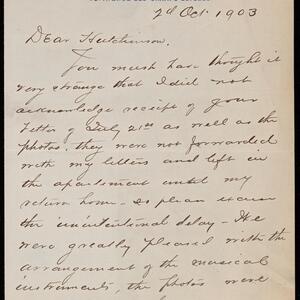 2d Oct 1903
Dear Hutchinson.
You must have thought it
very strange that I did not
acknowledge receipt of your
letter of July 21st as well as the
photos, they were not forwarded
with my letters and left in
the apartment until my
return home - so please excuse
the unintentional delay - We
were greatly pleased with the
arrangement of the musical
instruments, the photos were